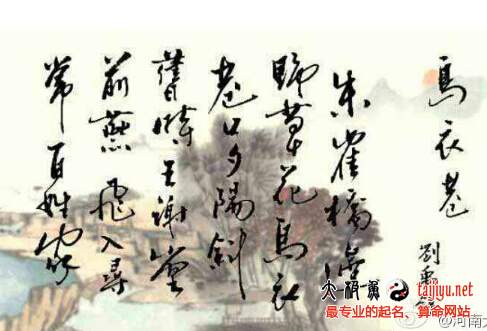 烏衣巷
劉禹
朱雀橋邊
野草花烏衣
巷口夕陽斜
舊時王謝堂
前燕飛入尋
常百姓家
taijiyu.net
最专业的起名、算命网站
@河南